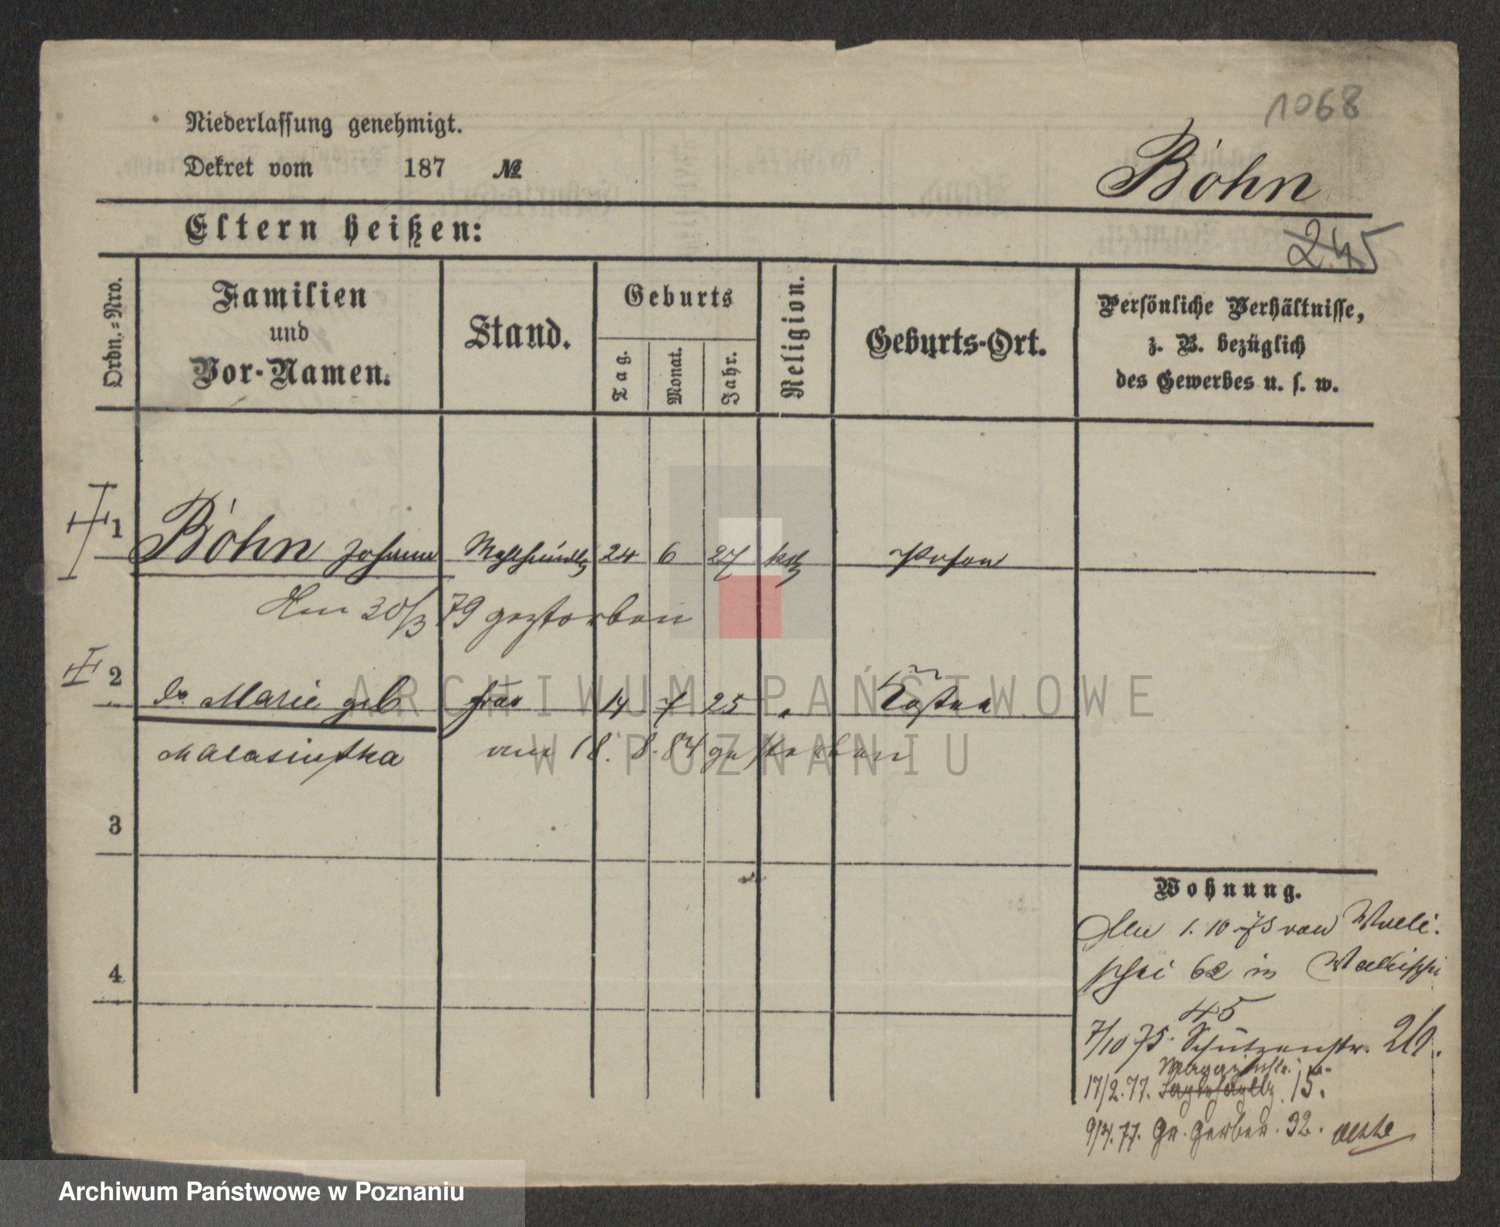 1068
Niederlassung genehmigt.
Dekret vom 187 №
Böhn
245
Eltern heißen:
Ordn.-Nro.
Familien
und
Vor-Namen.
Stand.
Geburts
Tag.
Monat.
Jahr.
Religion.
Geburts-Ort.
Persönliche Verhältnisse,
z. B. bezüglich
des Gewerbes u. s. w.
1 Böhn Johann 24 6 27 kath Posen
Den 30/3 79 gestorben
2 do Marie geb Frau 14 7 25 " Kosten
am 18. 8. 84 gestorben
ARCHIWUM PAŃSTWOWE
W POZNANIU
3
4
Wohnung.
Den 1. 10. 75 von Walli-
schei 62 in Wallischei
45
7/10 75. Schützenstr. 26.
17/2. 77. 15.
9/4. 77. Gr. Gerber. 32.
Archiwum Państwowe w Poznaniu